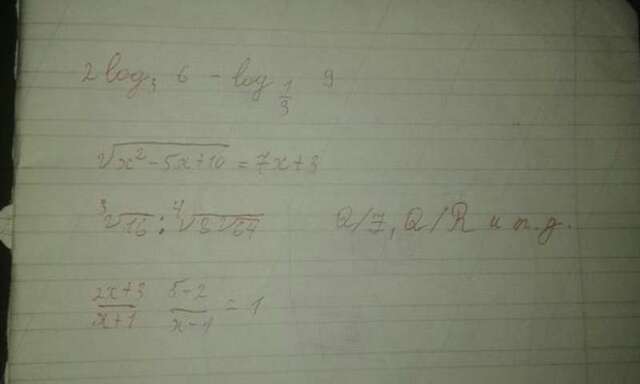 2 log₃ 6 - log_{1/3} 9
√(x² - 5x + 10) = 7x + 3
∛16 : ∜(8√64) Q/7, Q/R и т.д.
(2x+3)/(x+1) (5-2)/(x-1) = 1